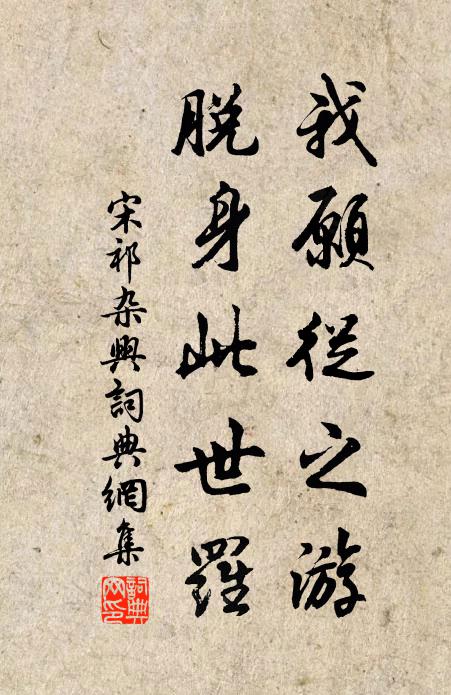 我願從之游
脫身此世羅
宋祁杂興詞典網集
詞典网印